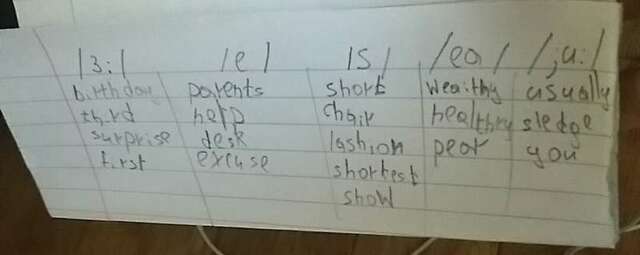 /3:/ /e/ /S/ /ea/ /ju:/
birthday parents short weaithy usually
third help chair healthy sledge
surprise desk fashion pear you
first excuse shortest
show